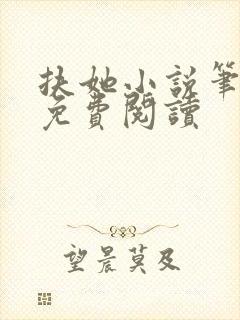 扶她小说筆
免費閱讀
望晨莫及